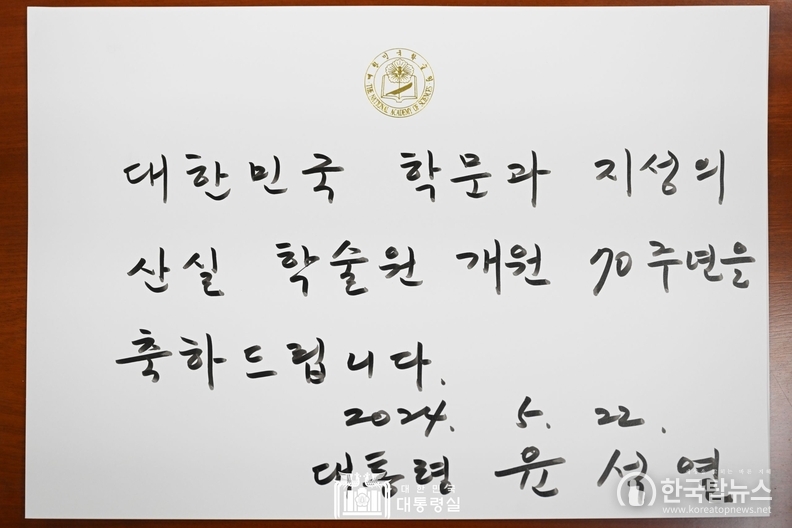 대한민국학술원
THE NATIONAL ACADEMY OF SCIENCES
대한민국 학문과 지성의
산실 학술원 개원 70주년을
축하드립니다.
2024. 5. 22.
대통령 윤석열
대한민국
대통령실
한국탑뉴스
www.koreatopnews.net